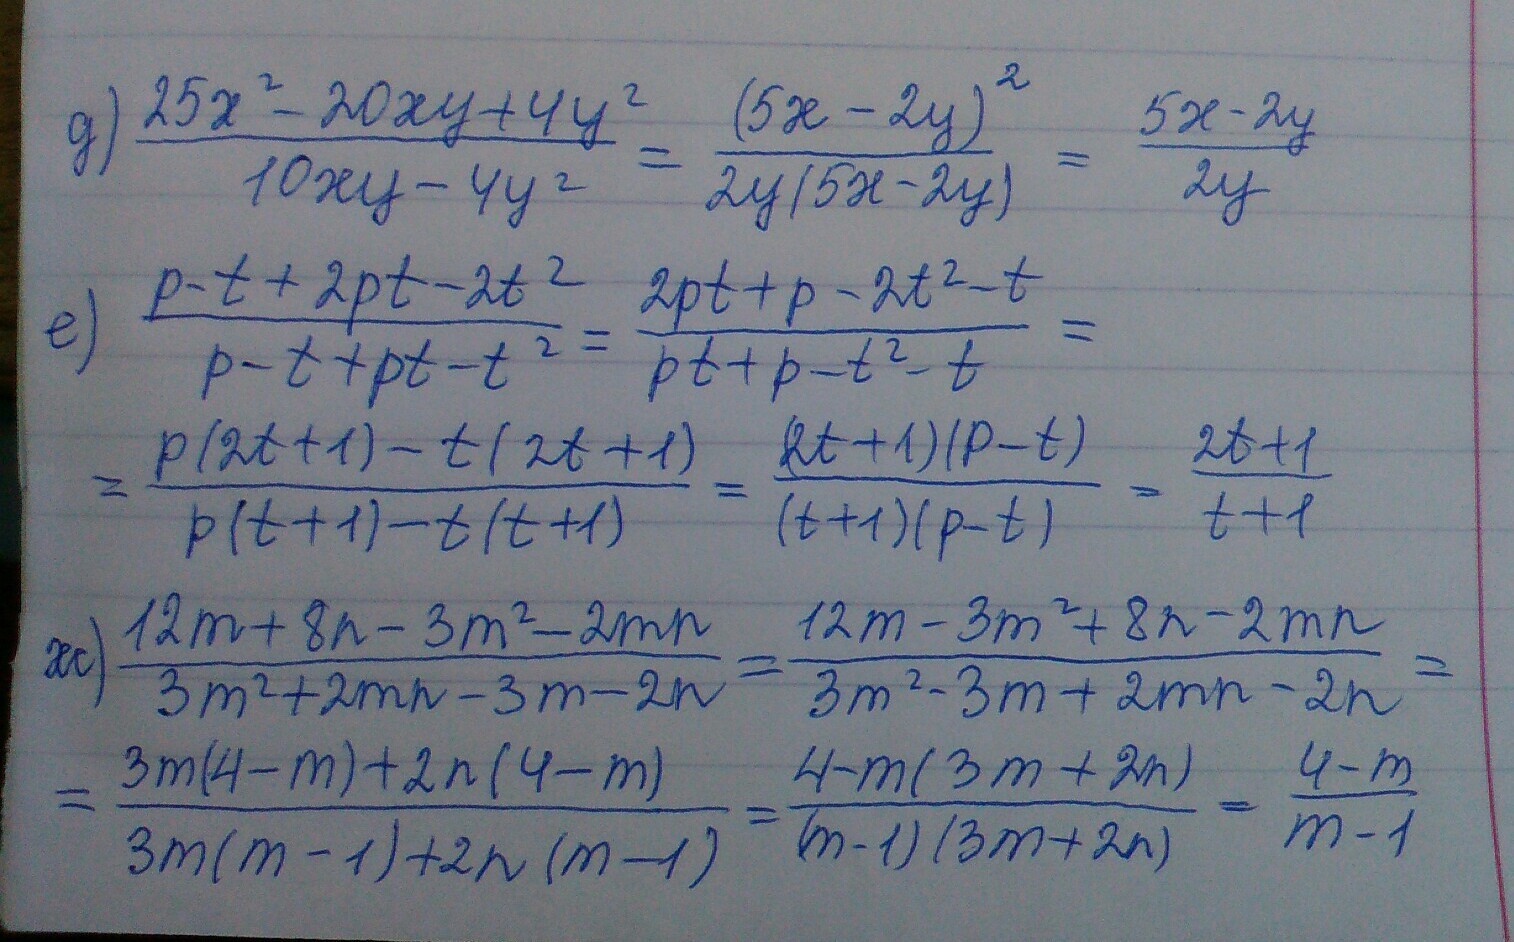 д) (25x² - 20xy + 4y²)/(10xy - 4y²) = (5x - 2y)²/(2y(5x - 2y)) = (5x - 2y)/(2y)
е) (p - t + 2pt - 2t²)/(p - t + pt - t²) = (2pt + p - 2t² - t)/(pt + p - t² - t) =
= (p(2t + 1) - t(2t + 1))/(p(t + 1) - t(t + 1)) = ((2t + 1)(p - t))/((t + 1)(p - t)) = (2t + 1)/(t + 1)
ж) (12m + 8n - 3m² - 2mn)/(3m² + 2mn - 3m - 2n) = (12m - 3m² + 8n - 2mn)/(3m² - 3m + 2mn - 2n) =
= (3m(4 - m) + 2n(4 - m))/(3m(m - 1) + 2n(m - 1)) = (4 - m(3m + 2n))/((m - 1)(3m + 2n)) = (4 - m)/(m - 1)